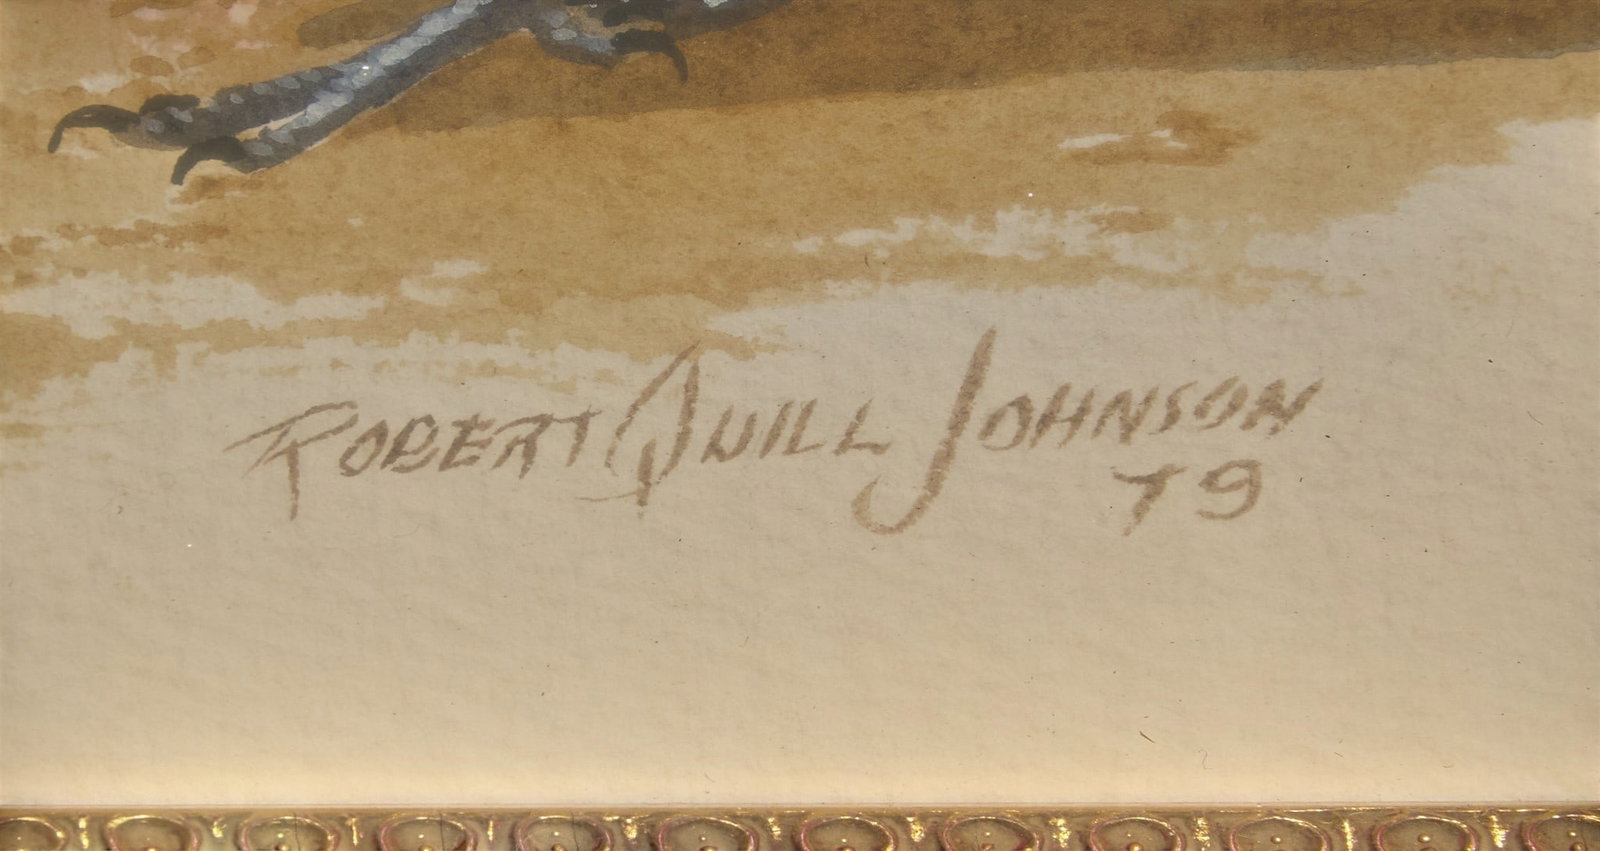 ROBERT QUILL JOHNSON
79